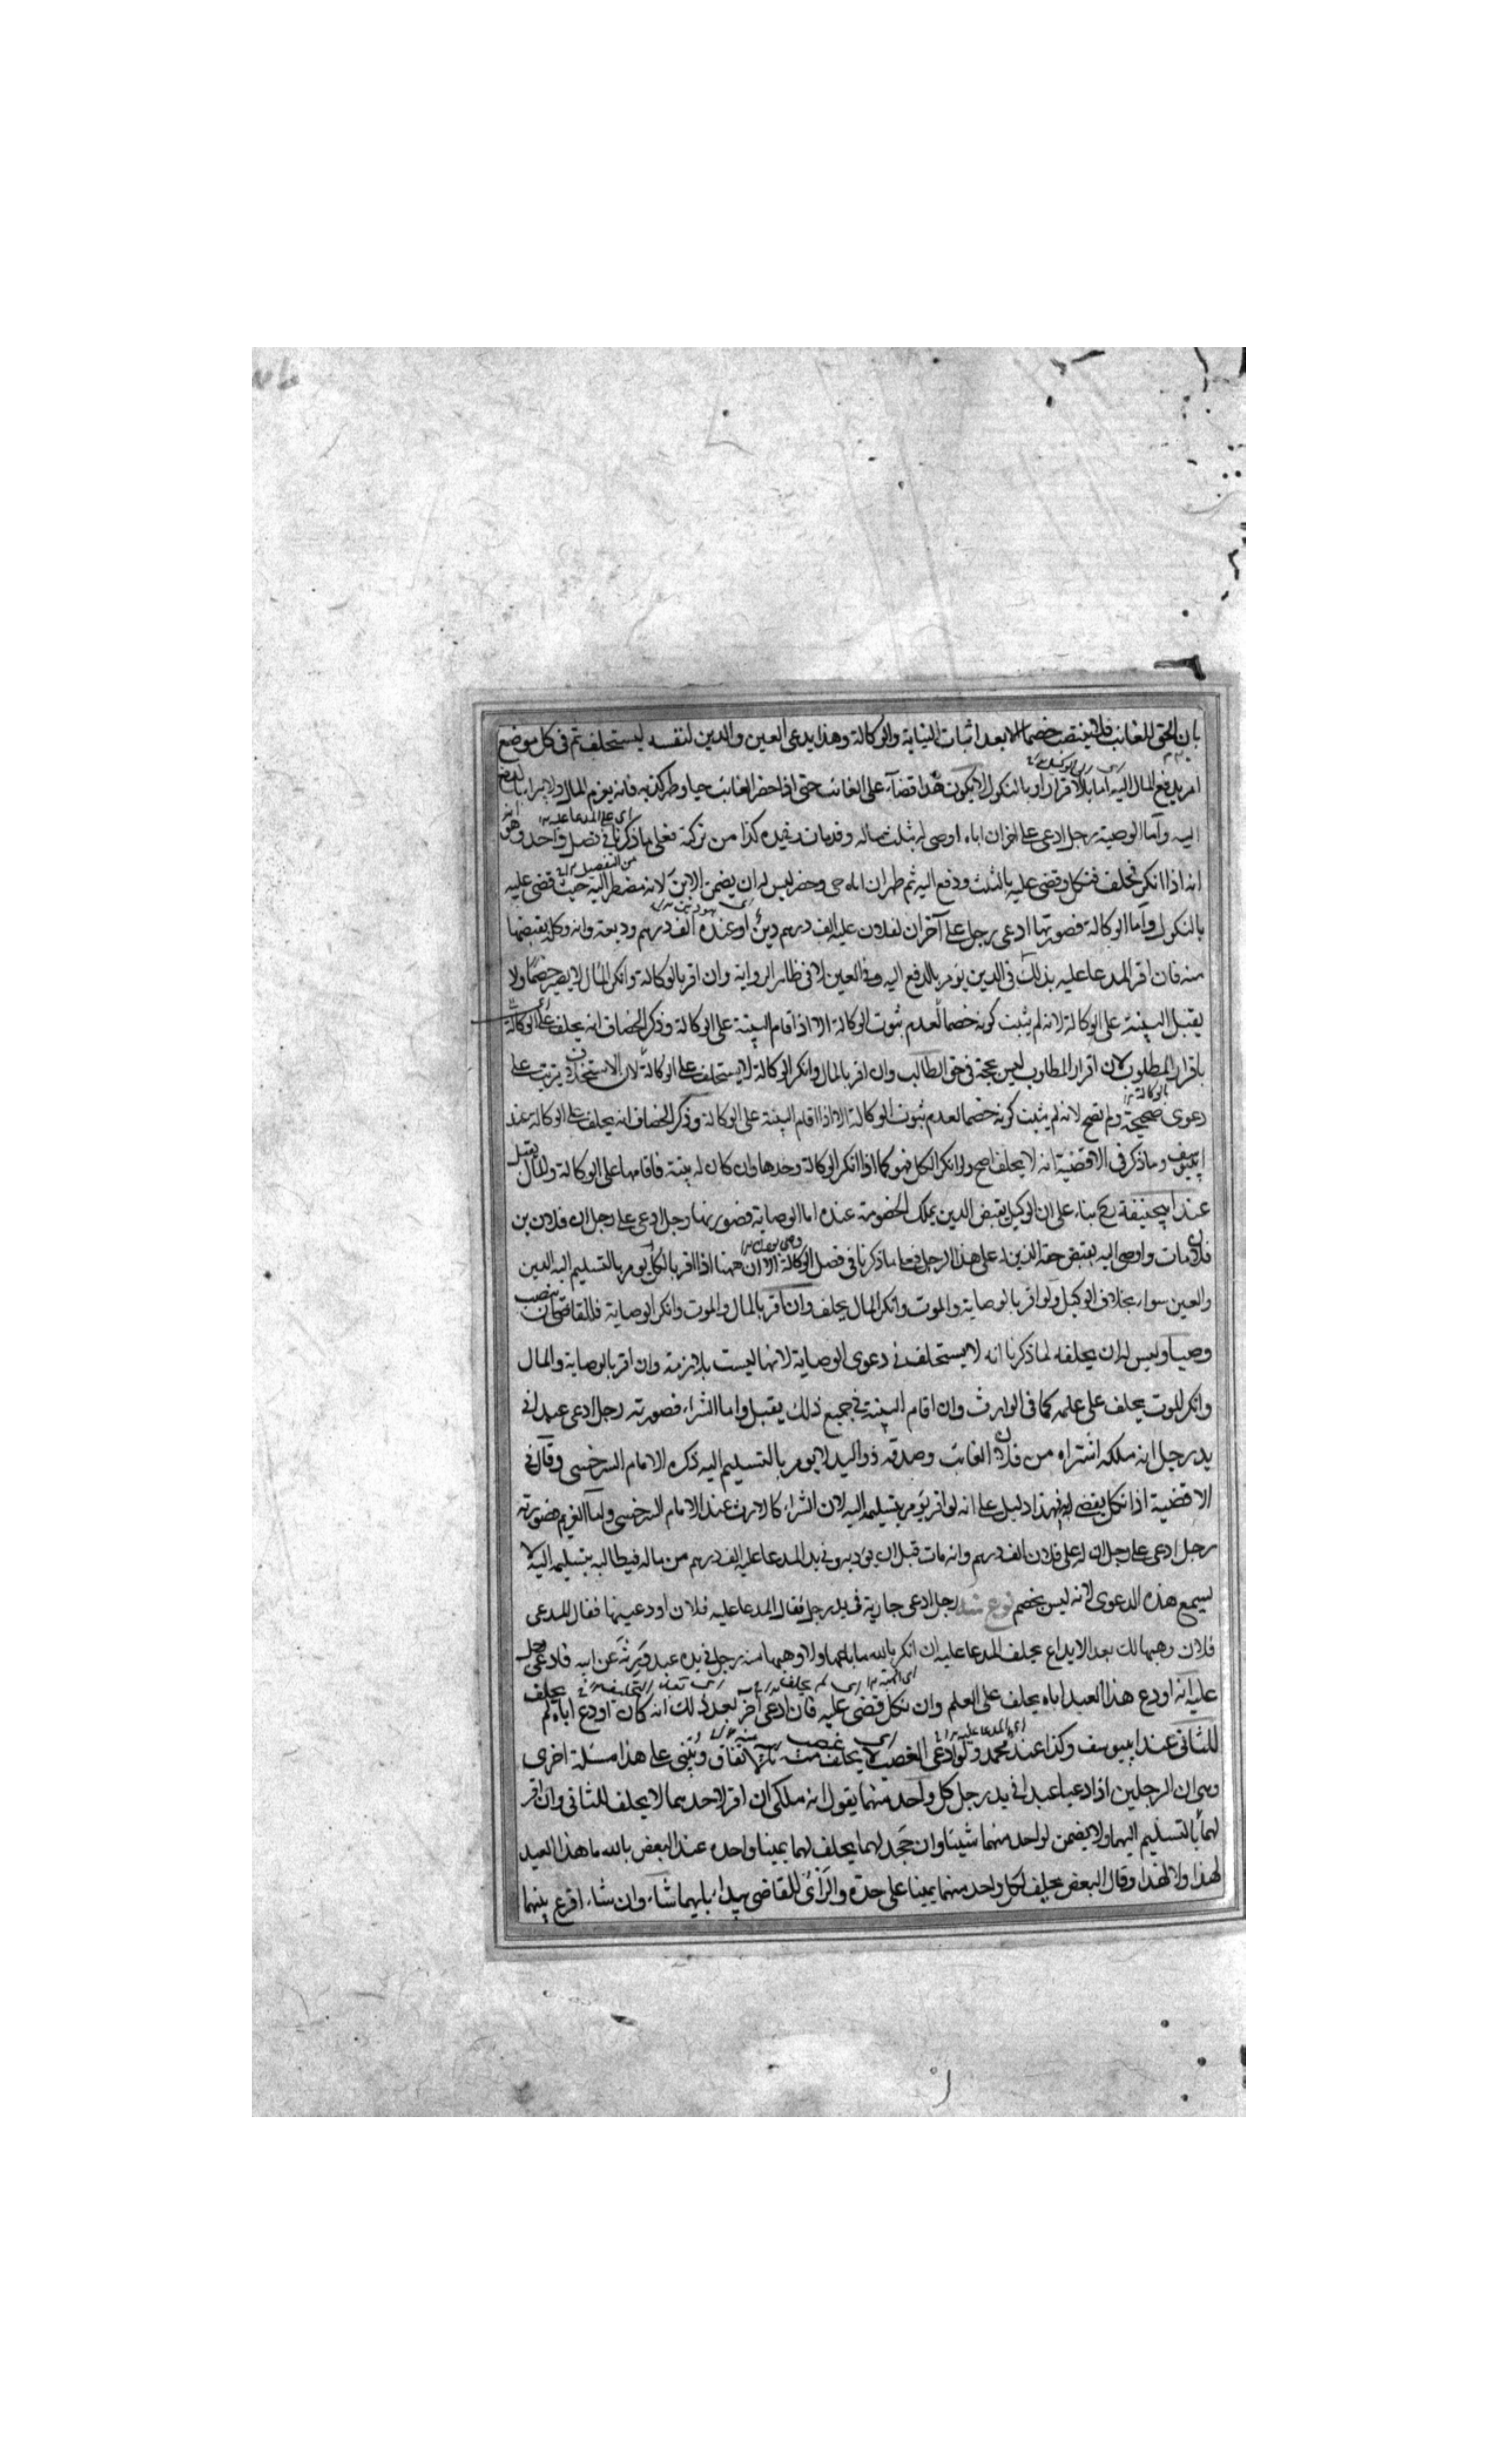 بان الحق للغائب فلا ينتصب خصما الا بعد اثبات النيابة والوكالة وهذا يدعى العين والدين لنفسه ليستحلف ثم فى كل موضع
امر بدفع المال اليه اما بالاقرار او بالنكول لا يكون هذا قضاء على الغائب حتى اذا حضر الغائب حيا وظهر كذبه فانه يغرم المال ولا يبرا بالدفع
اليه واما الوصية رجل ادعى على اخر ان اباه اوصى له بثلث ماله وقد مات وفى يده كذا من تركته فعلى ما ذكرنا فى فصل واحد وهو
انه اذا انكر فحلف فنكل وقضى عليه بالثلث ودفع اليه ثم ظهر ان اباه حى وحضر ليس له ان يضمن الابن لانه مضطر اليه حيث قضى عليه
بالنكول واما الوكالة فصورتها ادعى رجل على آخر ان لفلان عليه الف درهم دين او عنده الف درهم وديعة وانه وكله بقبضها
منه فان اقر المدعا عليه بذلك فى الدين يؤمر بالدفع اليه وفى العين لا فى ظاهر الرواية وان اقر بالوكالة وانكر المال لا يصير خصما ولا
يقبل البينة على الوكالة لانه لم يثبت كونه خصما لعدم ثبوت الوكالة الا اذا اقام البينة على الوكالة وذكر الخصاف انه يحلف على الوكالة
باقرار المطلوب لان اقرار المطلوب ليس بحجة فى حق الطالب وان اقر بالمال وانكر الوكالة لا يستحلف على الوكالة لان الاستحلاف يترتب على
دعوى صحيحة ولم تصح لانه لم يثبت كونه خصما لعدم ثبوت الوكالة الا اذا اقام البينة على الوكالة وذكر الخصاف انه يحلف على الوكالة عند
ابيوسف وما ذكر فى الاقضية انه لا يحلف اصح ولو انكر الكل فهو كما اذا انكر الوكالة وحدها وان كان له بينة فاقامها على الوكالة والمال يقبل
عند ابيحنيفة رح بناء على ان الوكيل بقبض الدين يملك الخصومة عنده اما الوصاية فصورتها رجل ادعى على رجل ان فلان بن
فلان مات واوصى اليه بقبض حقه الذى له على هذا الرجل فعلى ما ذكرنا فى فصل الوكالة الا ان ههنا اذا اقر بالكل يؤمر بالتسليم اليه الدين
والعين سواء بخلاف الوكيل ولو اقر بالوصاية والموت وانكر المال يحلف وان اقر بالمال والموت وانكر الوصاية فللقاضى ان ينصب
وصيا وليس له ان يحلفه لما ذكرنا انه لا يستحلف فى دعوى الوصاية لانها ليست بلازمة وان اقر بالوصاية والمال
وانكر الموت يحلف على علمه كما فى الوارث وان اقام البينة فى جميع ذلك يقبل واما الشراء فصورته رجل ادعى عبدا فى
يد رجل انه ملكه اشتراه من فلان الغائب وصدقه ذو اليد لا يومر بالتسليم اليه ذكره الامام السرخسى وقال فى
الاقضية اذا نكل يقضى له فهذا دليل على انه لو اقر يؤمر بتسليمه اليه لان الشراء كالارث عند الامام السرخسى واما الغريم فصورته
رجل ادعى على رجل ان له على فلان الف درهم وانه مات قبل ان يؤديه وفى يد المدعا عليه الف درهم من ماله فيطالبه بتسليمه اليه لا
يسمع هذه الدعوى لانه ليس بخصم نوع منه رجل ادعى جارية فى يد رجل فقال المدعا عليه فلان اودعنيها فقال المدعى
فلان وهبها لك بعد الايداع يحلف المدعا عليه ان انكر بالله ما باعها ولا وهبها منه رجل فى يده عبد ورثه عن ابيه فادعى رجل
عليه انه اودع هذا العبد اباه يحلف على العلم وان نكل قضى عليه فان ادعى آخر بعد ذلك انه كان اودع اباه لم يحلف
للثانى عند ابيوسف وكذا عند محمد ولو ادعى الغصب لا يحلف بالاتفاق ويبتنى على هذا مسئلة اخرى
وهى ان الرجلين اذا ادعيا عبدا فى يد رجل كل واحد منهما يقول انه ملكى ان اقر لاحدهما لا يحلف للثانى وان اقر
لهما بالتسليم اليهما ولا يضمن لواحد منهما شيئا وان جحد لهما يحلف لهما يمينا واحده عند البعض بالله ما هذا العبد
لهذا ولا لهذا وقال البعض يحلف لكل واحد منهما يمينا على حدة والرأى للقاضى يبداء بايهما شاء وان شاء اقرع بينهما